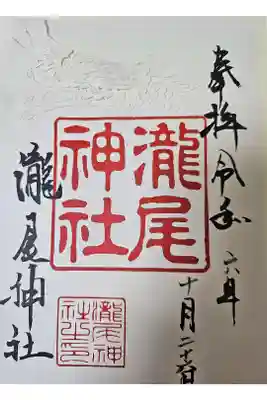 奉拝 令和六年
十月二十日
瀧尾
神社
瀧尾神社
瀧尾神
社之印